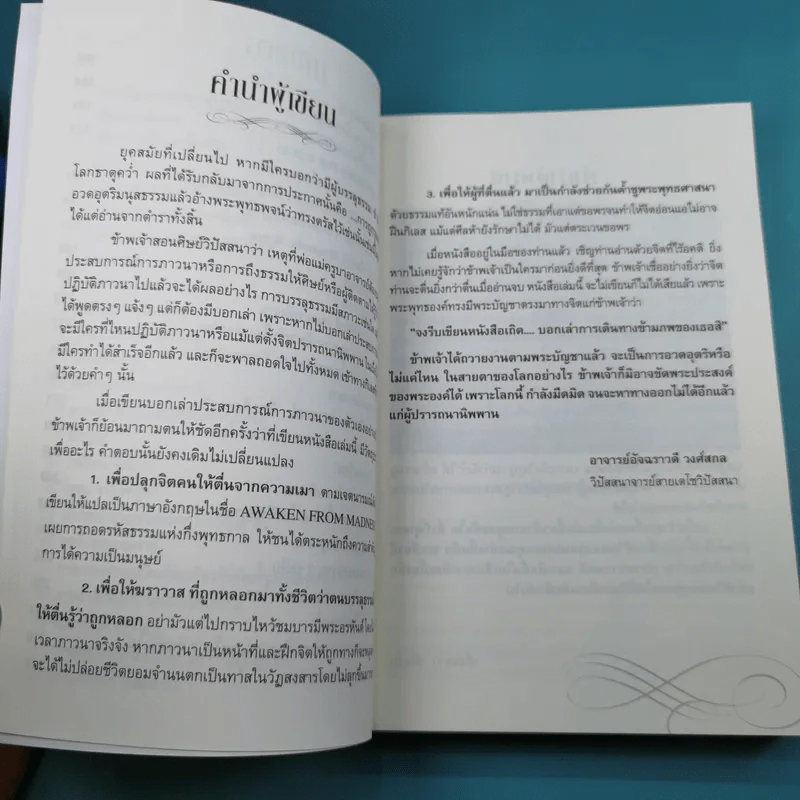 คำนำผู้เขียน
ยุคสมัยที่เปลี่ยนไป หากมีใครบอกว่ามีผู้บรรลุธรรม
โลกธาตุคว่ำ ผลที่ได้รับกลับมาจากการประกาศนั้นคือ
อวดอุตริมนุสธรรมแล้วอ้างพระพุทธพจน์ว่าทรงตรัสไว้เช่นนั้น
ได้แต่อ่านจากตำราทั้งสิ้น
ข้าพเจ้าสอนศิษย์วิปัสสนาว่า เหตุที่พ่อแม่ครูบาอาจารย์
ประสบการณ์การภาวนาหรือการถึงธรรมให้ศิษย์หรือผู้ติดตาม
ปฏิบัติภาวนาไปแล้วจะได้ผลอย่างไร การบรรลุธรรมมีสภาวะ
ได้พูดตรงๆ แจ้งๆ แต่ก็ต้องมีบอกเล่า เพราะหากไม่บอกเล่า
จะมีใครที่ไหนปฏิบัติภาวนาหรือแม้แต่ตั้งจิตปรารถนานิพพาน
มีใครทำได้สำเร็จอีกแล้ว และก็จะพาลถอดใจไปทั้งหมด
ไว้ด้วยคำๆ นั้น
เมื่อเขียนบอกเล่าประสบการณ์การภาวนาของตัวเอง
ข้าพเจ้าก็ย้อนมาถามตนให้ชัดอีกครั้งว่าที่เขียนหนังสือเล่มนี้
เพื่ออะไร คำตอบนั้นยังคงเดิมไม่เปลี่ยนแปลง
1. เพื่อปลุกจิตคนให้ตื่นจากความเมา ตามเจตนารมณ์
เขียนให้แปลเป็นภาษาอังกฤษในชื่อ AWAKEN FROM MADNE
เผยการถอดรหัสธรรมแห่งกึ่งพุทธกาล ให้ชนได้ตระหนักถึง
การได้ความเป็นมนุษย์
2. เพื่อให้ฆราวาส ที่ถูกหลอกมาทั้งชีวิตว่าตนบรรลุธรรม
ให้ตื่นรู้ว่าถูกหลอก อย่ามัวแต่ไปกราบไหว้ชมบารมีพระอรหันต์
เวลาภาวนาจริงจัง หากภาวนาเป็นหน้าที่และฝึกจิตให้ถูกทาง
จะได้ไม่ปล่อยชีวิตยอมจำนนตกเป็นทาสในวัฏสงสารโดยไม่ลุกขึ้น
3. เพื่อให้ผู้ที่ตื่นแล้ว มาเป็นกำลังช่วยกันค้ำชูพระพุทธศาสนา
ด้วยธรรมแท้อันหนักแน่น ไม่ใช่ธรรมที่เอาแต่ขอพรจนทำให้จิตอ่อนแอไม่อาจ
ฝืนกิเลส แม้แต่ศีลห้ายังรักษาไม่ได้ มัวแต่ตระเวนขอพร
เมื่อหนังสืออยู่ในมือของท่านแล้ว เชิญท่านอ่านด้วยจิตที่ไร้อคติ ยิ่ง
หากไม่เคยรู้จักว่าข้าพเจ้าเป็นใครมาก่อนยิ่งดีที่สุด ข้าพเจ้าเชื่ออย่างยิ่งว่าจิต
ท่านจะตื่นยิ่งกว่าตื่นเมื่ออ่านจบ หนังสือเล่มนี้ จะไม่เขียนก็ไม่ได้เสียแล้ว เพราะ
พระพุทธองค์ทรงมีพระบัญชาตรงมาทางจิตแก่ข้าพเจ้าว่า
"จงรีบเขียนหนังสือเถิด.... บอกเล่าการเดินทางข้ามภพของเธอสิ"
ข้าพเจ้าได้ถวายงานตามพระบัญชาแล้ว จะเป็นการอวดอุตริหรือ
ไม่แค่ไหน ในสายตาของโลกอย่างไร ข้าพเจ้าก็มิอาจขัดพระประสงค์
ของพระองค์ได้ เพราะโลกนี้ กำลังมืดมิด จนจะหาทางออกไม่ได้อีกแล้ว
แก่ผู้ปรารถนานิพพาน
อาจารย์อัจฉราวดี วงศ์สกล
วิปัสสนาจารย์สายเตโชวิปัสสนา